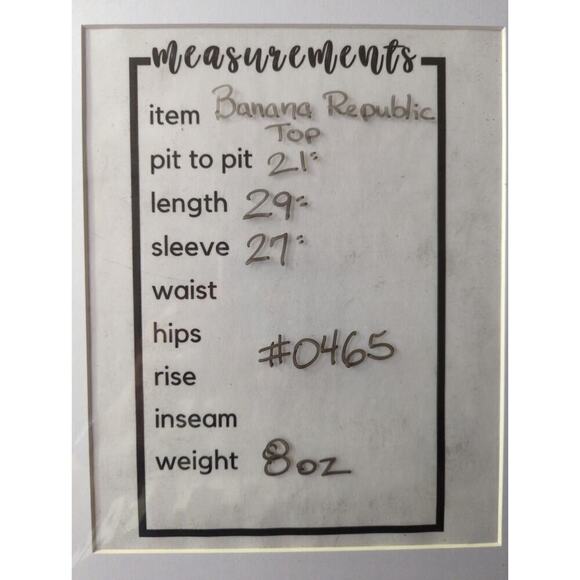 measurements
item Banana Republic
Top
pit to pit 21"
length 29"
sleeve 27"
waist
hips
#0465
rise
inseam
weight 8oz